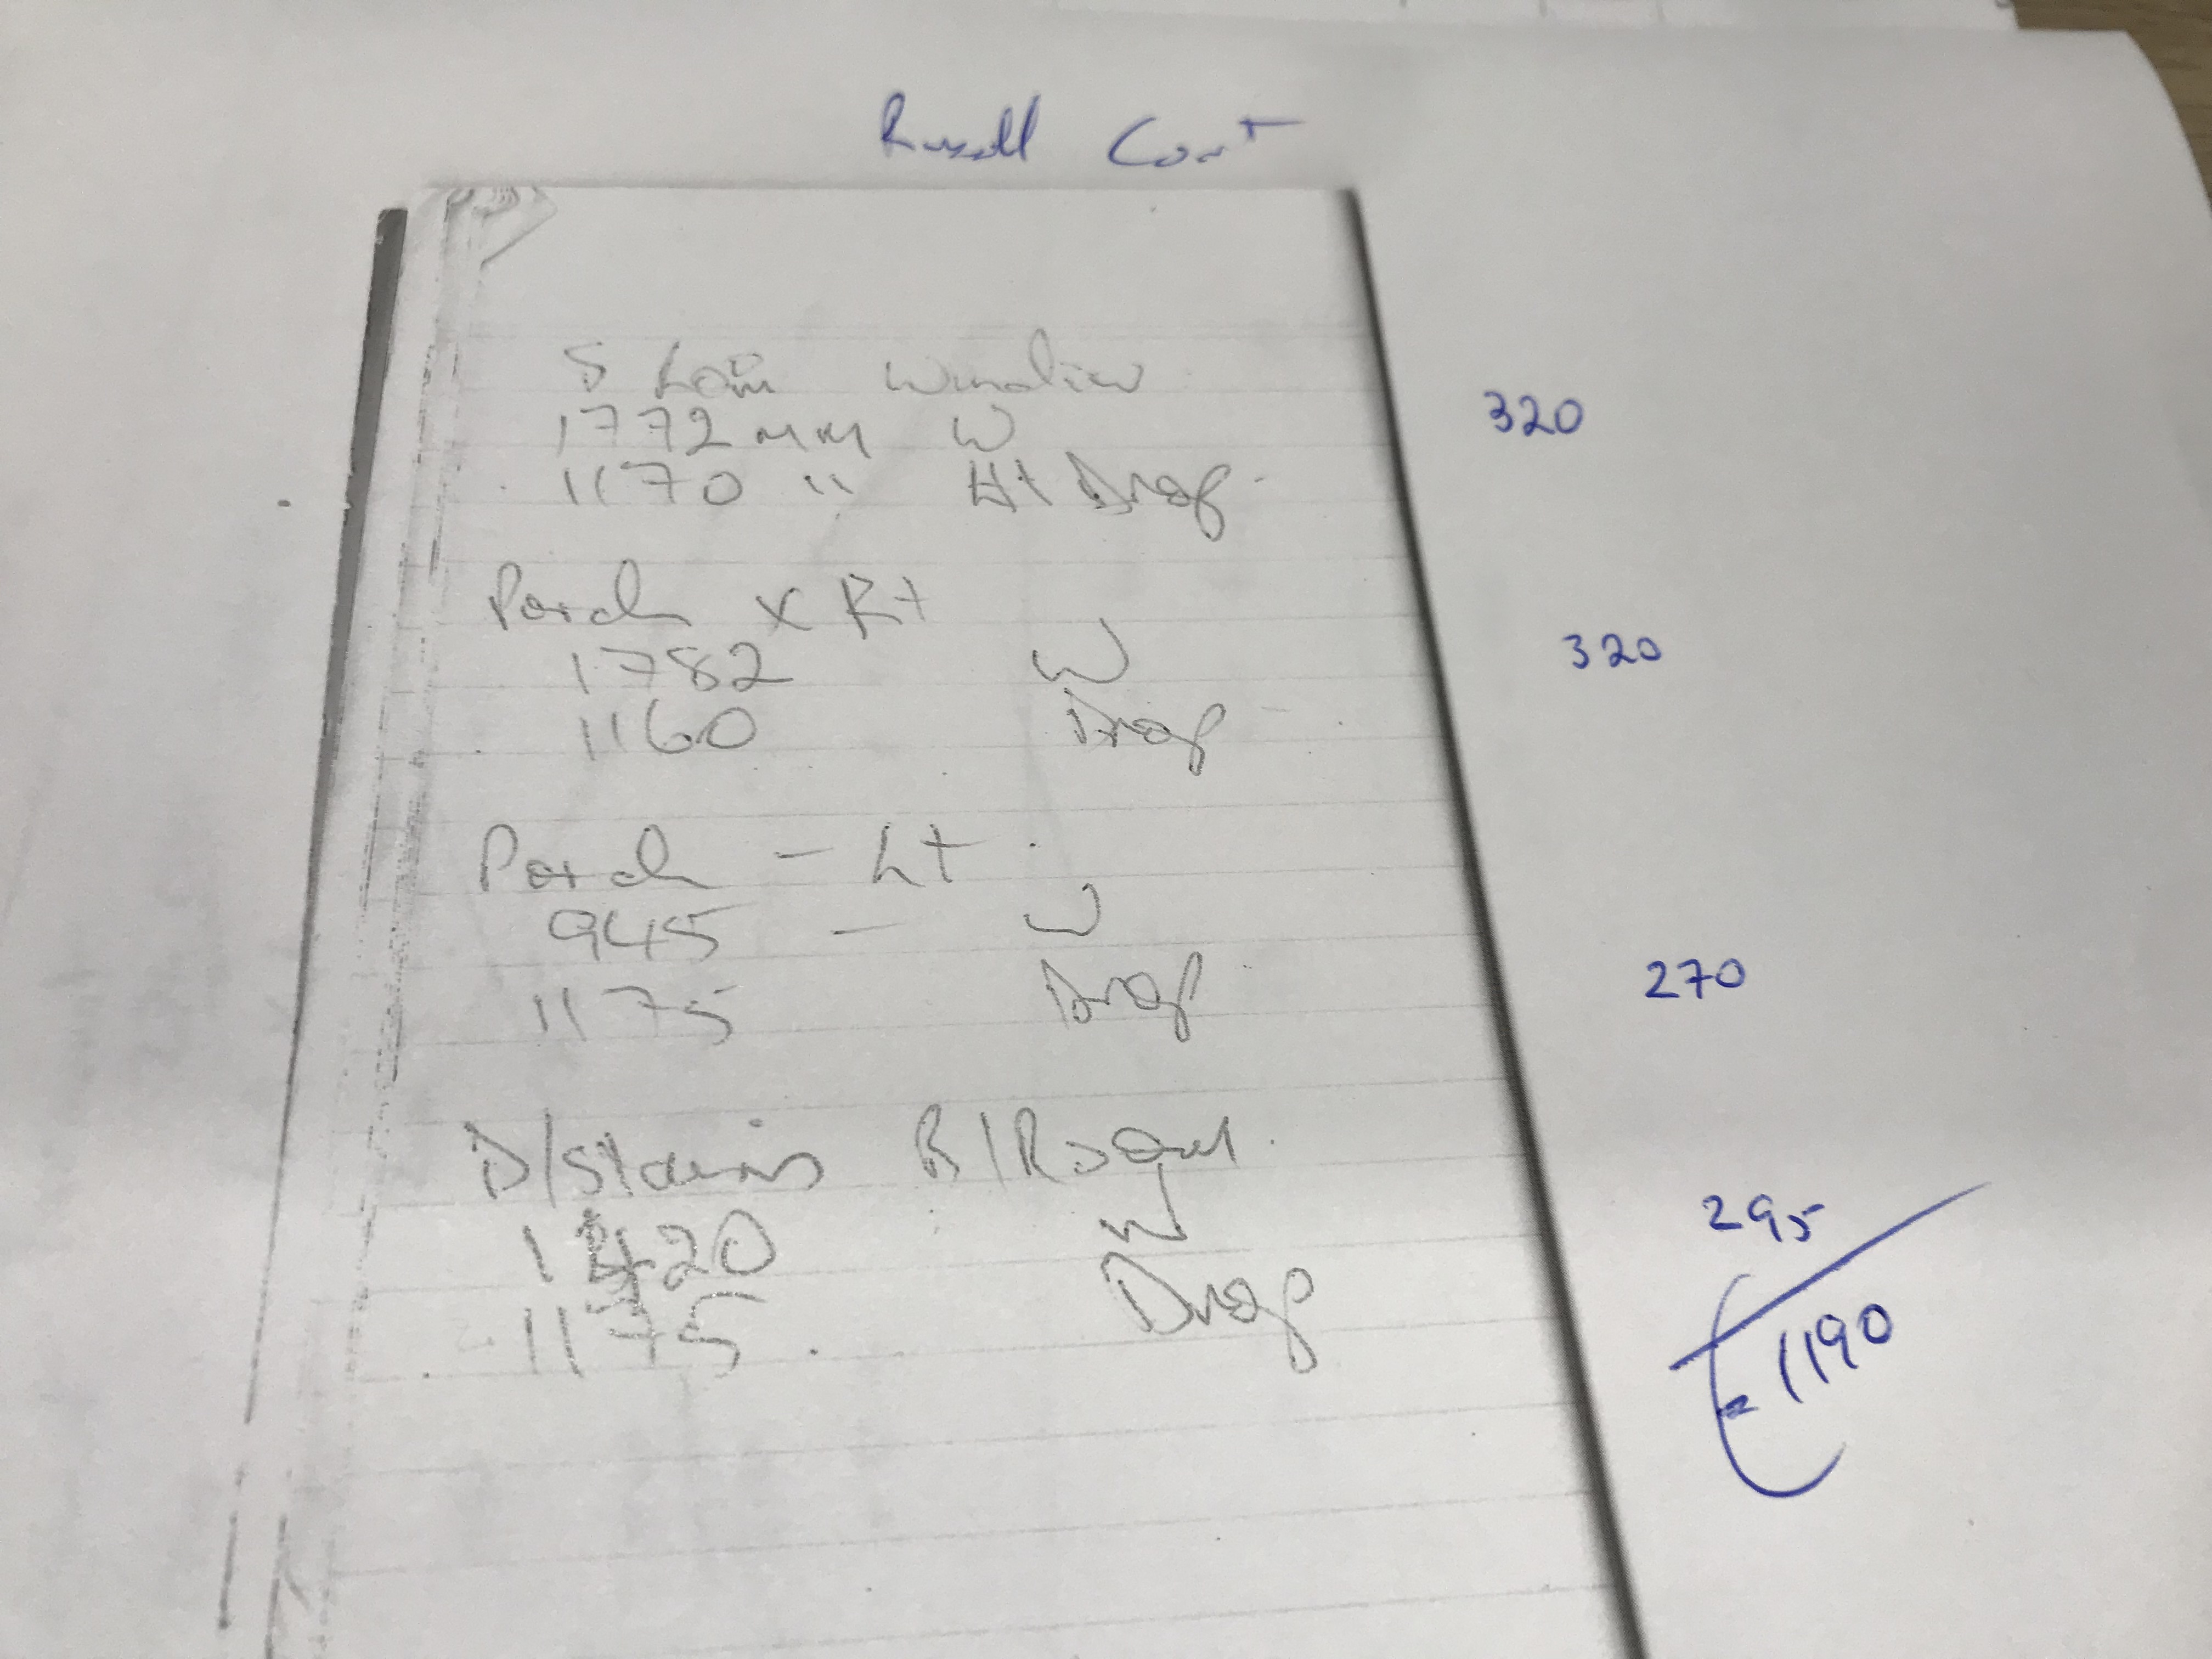 Russell Court
S Lain Window 320
1772 mm W
1170 " Ht Drop
Porch x Rt
1782 W 320
1160 Drop
Porch - Lt
945 - W
1175 Drop 270
D/Stairs B/Room
1420 W 295
1175 Drop
£1190